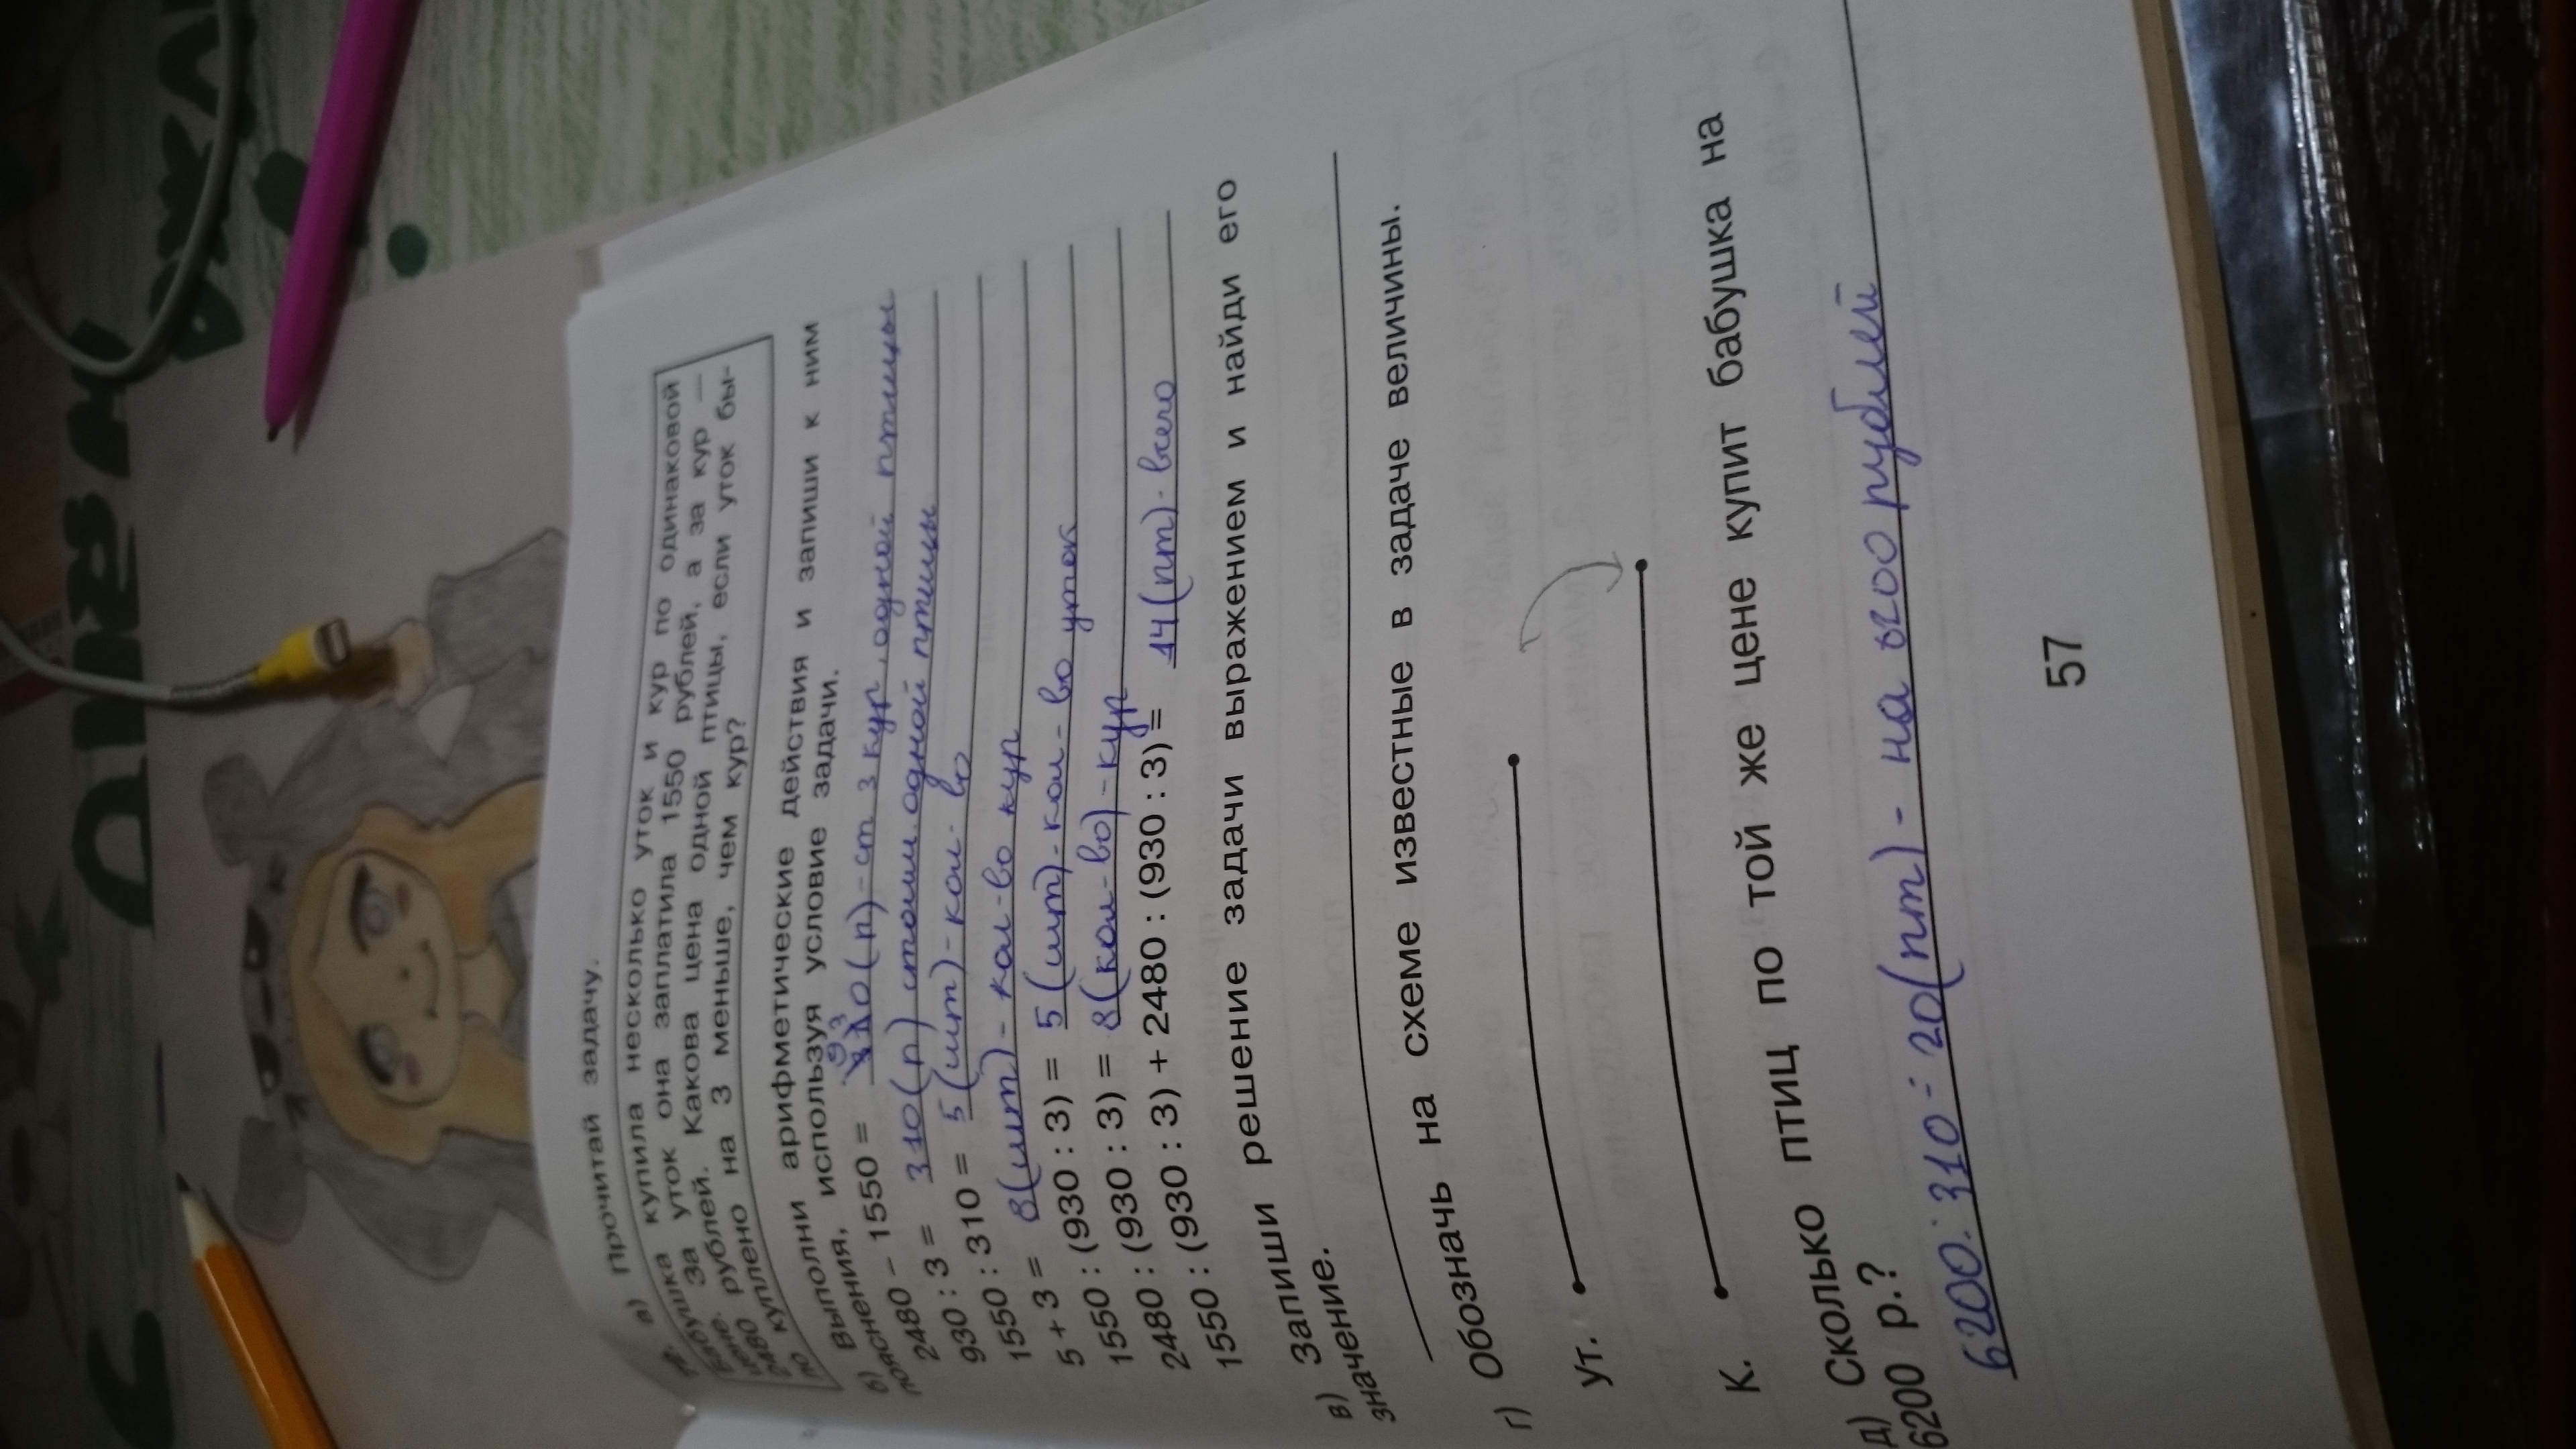 а) Прочитай задачу.
Бабушка купила несколько уток и кур по одинаковой
цене. За уток она заплатила 1550 рублей, а за кур —
2480 рублей. Какова цена одной птицы, если уток бы-
ло куплено на 3 меньше, чем кур?
б) Выполни арифметические действия и запиши к ним
пояснения, используя условие задачи.
2480 – 1550 = 930 (р) - ст 3 кур, одной птицы
930 : 3 = 310 (р) стоим. одной птицы
1550 : 310 = 5 (шт) - кол-во
5 + 3 = 8 (шт) - кол-во кур
1550 : (930 : 3) = 5 (шт) - кол-во уток
2480 : (930 : 3) = 8 (кол-во) - кур
1550 : (930 : 3) + 2480 : (930 : 3) = 14 (пт) - всего
в) Запиши решение задачи выражением и найди его
значение.
г) Обозначь на схеме известные в задаче величины.
Ут.
К.
д) Сколько птиц по той же цене купит бабушка на
6200 р.?
6200 : 310 = 20 (пт) - на 6200 рублей
57